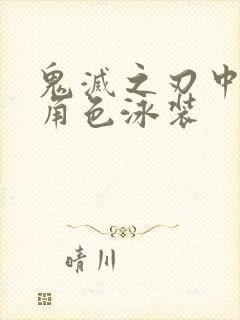 鬼滅之刃中
角色泳装
晴川